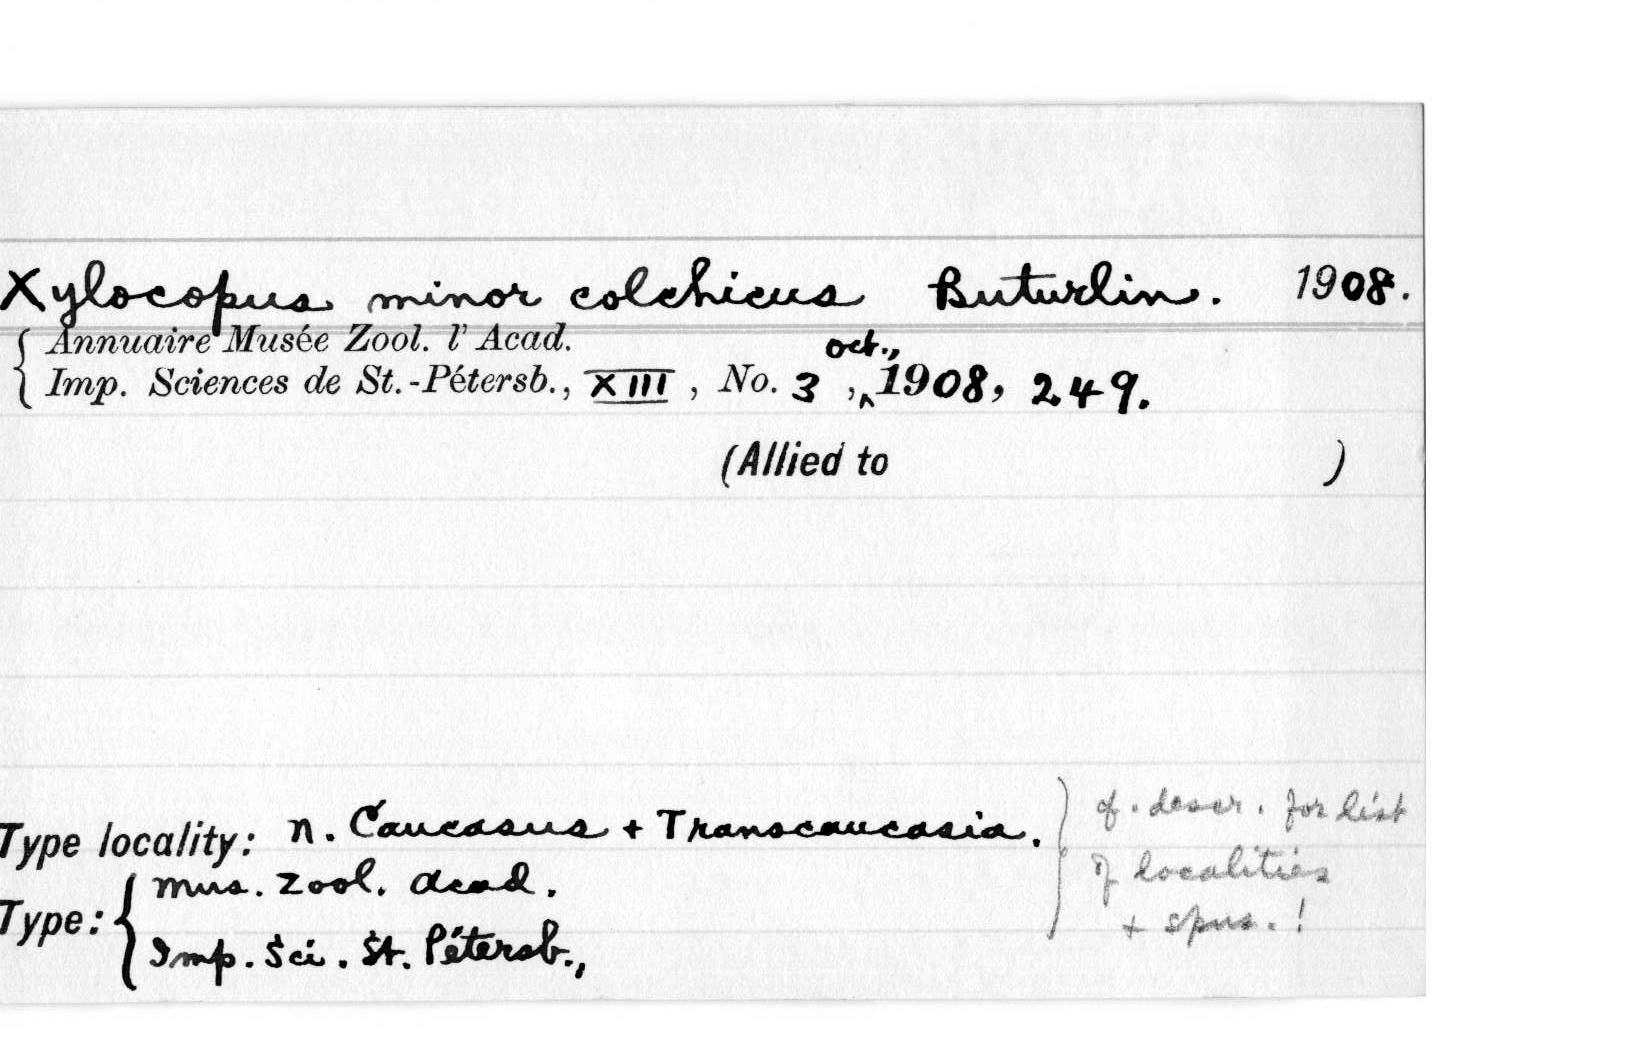 Xylocopus minor colchicus Buturlin. 1908.
Annuaire Musée Zool. l' Acad.
Imp. Sciences de St.-Pétersb., XIII, No. 3, Oct., 1908, 249.
(Allied to )
Type locality: n. Caucasus + Transcaucasia.
cf. descr. for list
of localities
+ spns. !
Type: Mus. Zool. Acad.
Imp. Sci. St. Pétersb.,